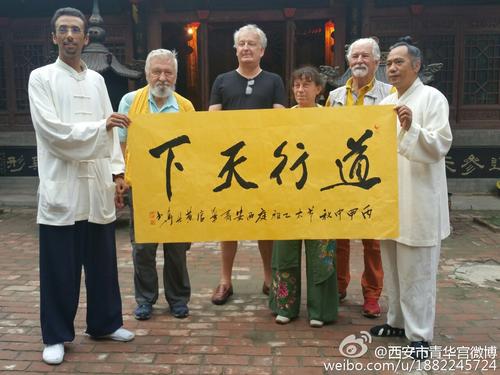 道行天下
丙申中秋节太乙祖庭西安青华宫
@西安市青华宫微博
weibo.com/u/1882245724